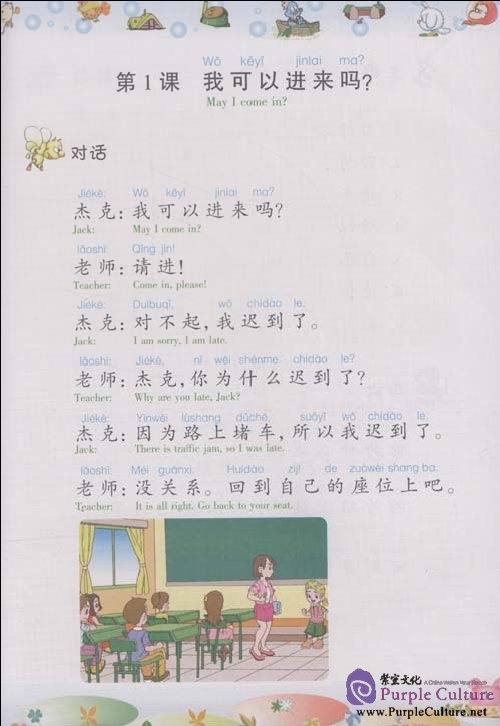 Wǒ kěyǐ jìnlai ma?
第1课 我可以进来吗?
May I come in?
对话
Jiékè: Wǒ kěyǐ jìnlai ma?
杰克:我可以进来吗?
Jack: May I come in?
lǎoshī: Qǐng jìn!
老师:请进!
Teacher: Come in, please!
Jiékè: Duìbuqǐ, wǒ chídào le.
杰克:对不起,我迟到了。
Jack: I am sorry, I am late.
lǎoshī: Jiékè, nǐ wèi shénme chídào le?
老师:杰克,你为什么迟到了?
Teacher: Why are you late, Jack?
Jiékè: Yīnwèi lùshang dǔchē, suǒyǐ wǒ chídào le.
杰克:因为路上堵车,所以我迟到了。
Jack: There is traffic jam, so I was late.
lǎoshī: Méi guānxi. Huídào zìjǐ de zuòwèi shang ba.
老师:没关系。回到自己的座位上吧。
Teacher: It is all right. Go back to your seat.
紫宝文化
Purple Culture
www.PurpleCulture.net